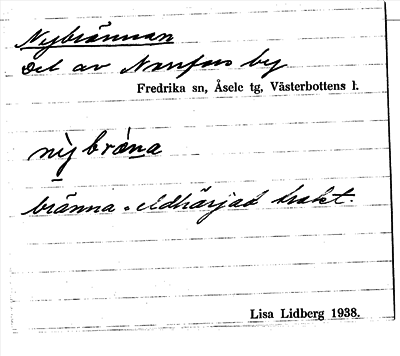 Nybrännan
Del av Norrfors by
Fredrika sn, Åsele tg, Västerbottens l.
nỳbrǻna
bränna = eldhärjad trakt.
Lisa Lidberg 1938.